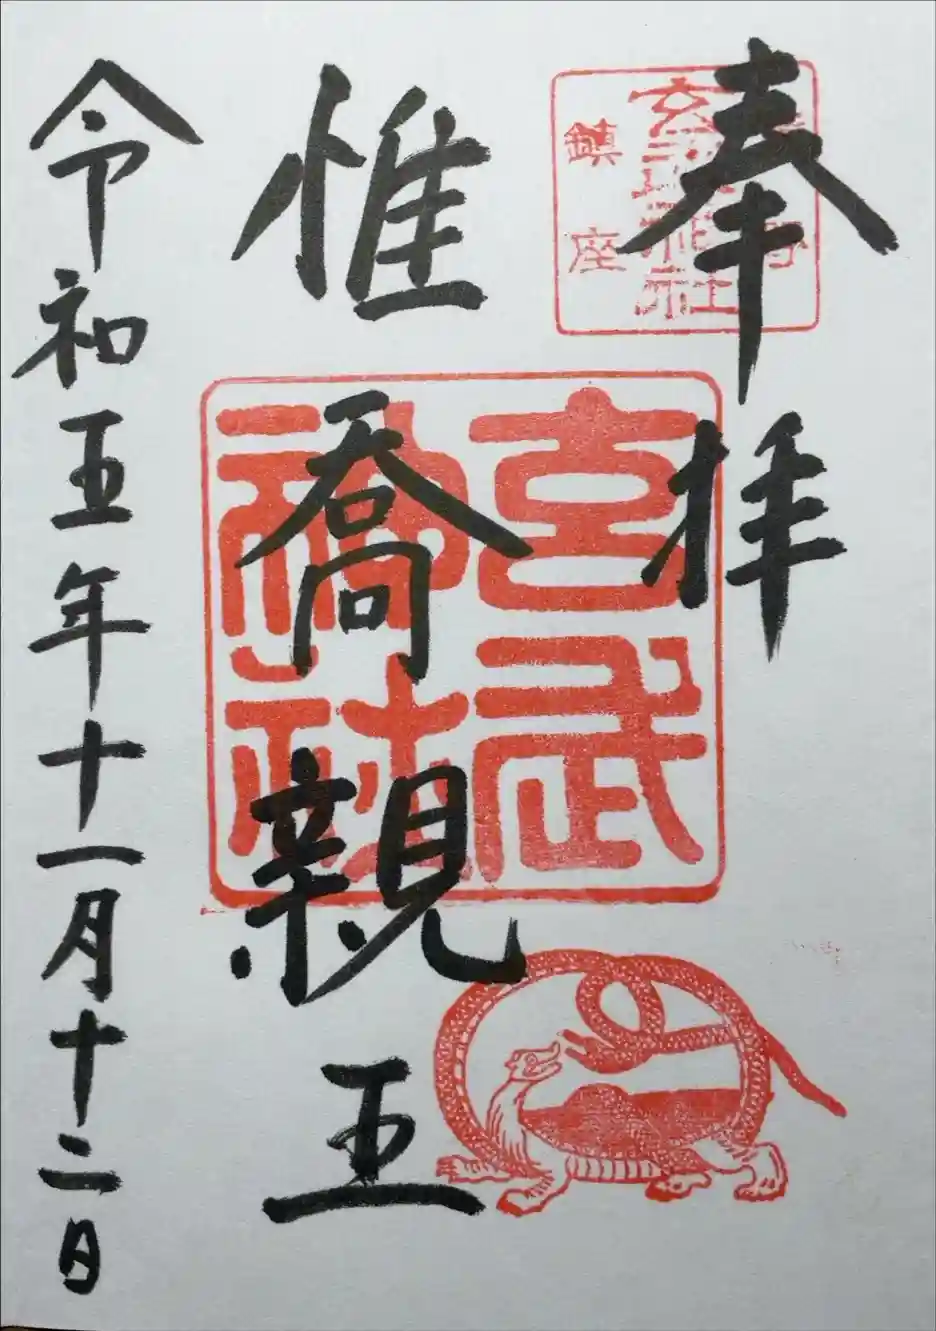 奉拝
玄武神社
鎮座
惟喬親王
玄武
神社
令和五年十一月十二日